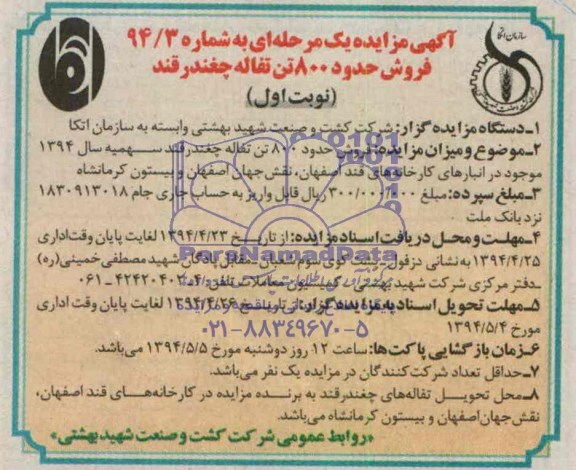 سازمان اتکا
آگهی مزایده یک مرحله‌ای به شماره ۹۴/۳
فروش حدود ۸۰۰ تن تفاله چغندرقند
(نوبت اول)
۱ـ دستگاه مزایده گزار: شرکت کشت و صنعت شهید بهشتی وابسته به سازمان اتکا
۲ـ موضوع و میزان مزایده: فروش حدود ۸۰۰ تن تفاله چغندرقند سهمیه سال ۱۳۹۴
موجود در انبارهای کارخانه‌های قند اصفهان، نقش جهان اصفهان و بیستون کرمانشاه
۳ـ مبلغ سپرده: مبلغ ۳۰۰/۰۰۰/۰۰۰ ریال قابل واریز به حساب جاری جام ۱۸۳۰۹۱۳۰۱۸
نزد بانک ملت
۴ـ مهلت و محل دریافت اسناد مزایده: از تاریخ ۱۳۹۴/۴/۲۳ لغایت پایان وقت اداری
۱۳۹۴/۴/۲۵ به نشانی دزفول ـ پشت کوی سوم شعبان ـ مقابل پادگان شهید مصطفی خمینی(ره)
ـ دفتر مرکزی شرکت شهید بهشتی ـ کمیسیون معاملات تلفن ۴ـ۴۲۴۲۰۴۰۳ ـ ۰۶۱
۵ـ مهلت تحویل اسناد به مزایده گزار: از تاریخ ۱۳۹۴/۴/۲۶ لغایت پایان وقت اداری
مورخ ۱۳۹۴/۵/۴
۶ـ زمان بازگشایی پاکت‌ها: ساعت ۱۲ روز دوشنبه مورخ ۱۳۹۴/۵/۵ می‌باشد.
۷ـ حداقل تعداد شرکت‌کنندگان در مزایده یک نفر می‌باشد.
۸ـ محل تحویل تفاله‌های چغندرقند به برنده مزایده در کارخانه‌های قند اصفهان،
نقش جهان اصفهان و بیستون کرمانشاه می‌باشد.
«روابط عمومی شرکت کشت و صنعت شهید بهشتی»
ParsNamadData
۰۲۱-۸۸۳۴۹۶۷۰-۵